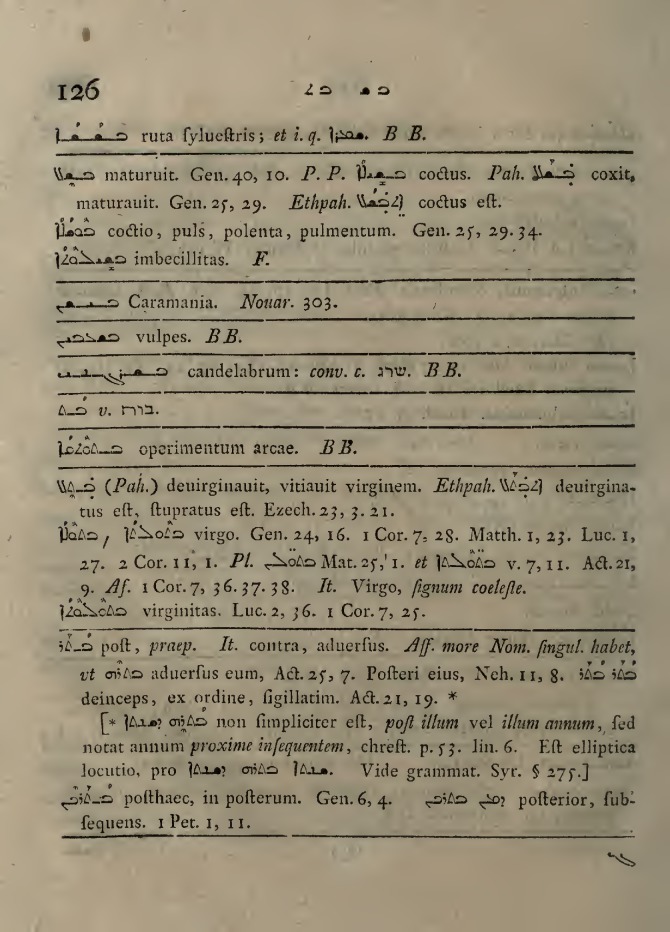 126 ܒܫ ܒܬ
ܒܫܫܐ ruta ſylueſtris; et i. q. B B.
ܒܫܠ maturuit. Gen. 40, 10. P. P. ܒܫܝܠܐ coctus. Pah. ܒܫܠ coxit,
maturauit. Gen. 25, 29. Ethpah. ܐܬܒܫܠ coctus eſt.
ܒܘܫܠܐ coctio, puls, polenta, pulmentum. Gen. 25, 29. 34.
ܒܫܝܠܘܬܐ imbecillitas. F.
Caramania. Nouar. 303.
vulpes. B B.
candelabrum: conv. c. שרג. B B.
ܒܬ v. בות.
operimentum arcae. B B.
ܒܬܠ (Pah.) deuirginauit, vitiauit virginem. Ethpah. ܐܬܒܬܠ deuirgina-
tus eſt, ſtupratus eſt. Ezech. 23, 3. 21.
ܒܬܘܠܐ, ܒܬܘܠܬܐ virgo. Gen. 24, 16. 1 Cor. 7, 28. Matth. 1, 23. Luc. 1,
27. 2 Cor. 11, 1. Pl. ܒܬܘܠܢ Mat. 25, 1. et ܒܬܘܠܬܐ v. 7, 11. Act. 21,
9. Aſ. 1 Cor. 7, 36. 37. 38. It. Virgo, ſignum coeleſte.
ܒܬܘܠܘܬܐ virginitas. Luc. 2, 36. 1 Cor. 7, 25.
ܒܬܪ poſt, praep. It. contra, aduerſus. Aff. more Nom. ſingul. habet,
vt ܒܬܪܗ aduerſus eum, Act. 25, 7. Poſteri eius, Neh. 11, 8. ܒܬܪ ܒܬܪ
deinceps, ex ordine, ſigillatim. Act. 21, 19. *
[* ܒܬܪܗ ܕܫܢܬܐ non ſimpliciter eſt, poſt illum vel illum annum, ſed
notat annum proxime inſequentem, chreſt. p. 53. lin. 6. Eſt elliptica
locutio, pro ܫܢܬܐ ܒܬܪܗ ܕܫܢܬܐ. Vide grammat. Syr. § 275.]
ܒܬܪܟܢ poſthaec, in poſterum. Gen. 6, 4. ܕܡܢ ܒܬܪܟܢ poſterior, ſub-
ſequens. 1 Pet. 1, 11.